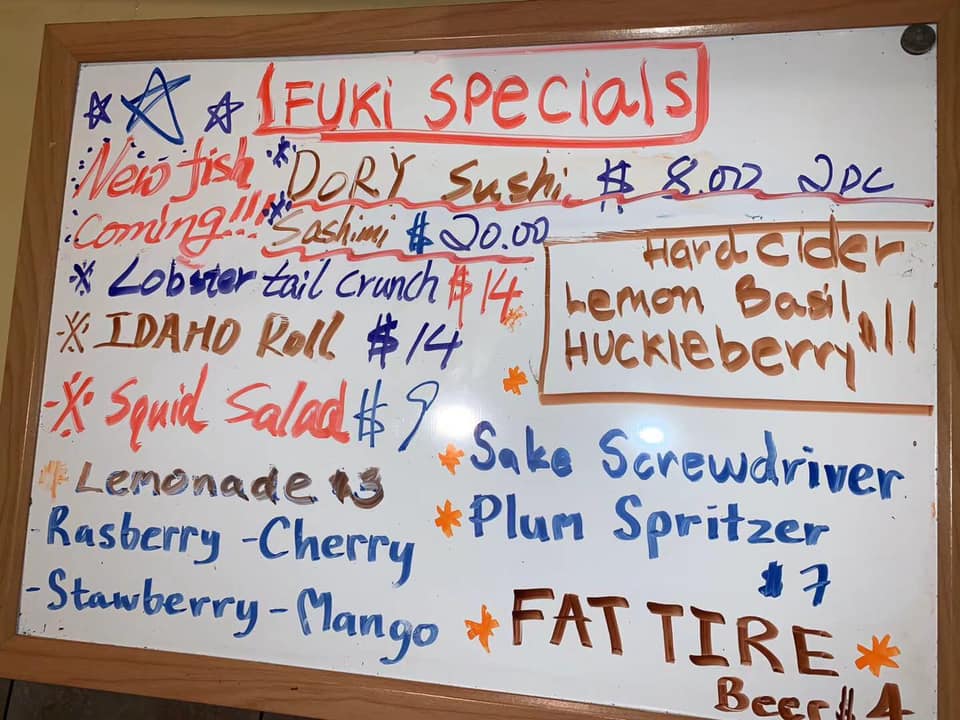 FUKI SPECIALS
New fish coming!!!
DORY Sushi $8.00 2pc
Sashimi $20.00
Lobster tail crunch $14
IDAHO Roll $14
Squid Salad $9
Lemonade $3
Rasberry - Cherry
- Stawberry - Mango
Hard Cider
Lemon Basil
Huckleberry $11
* Sake Screwdriver
* Plum Spritzer
$7
* FAT TIRE *
Beer $4